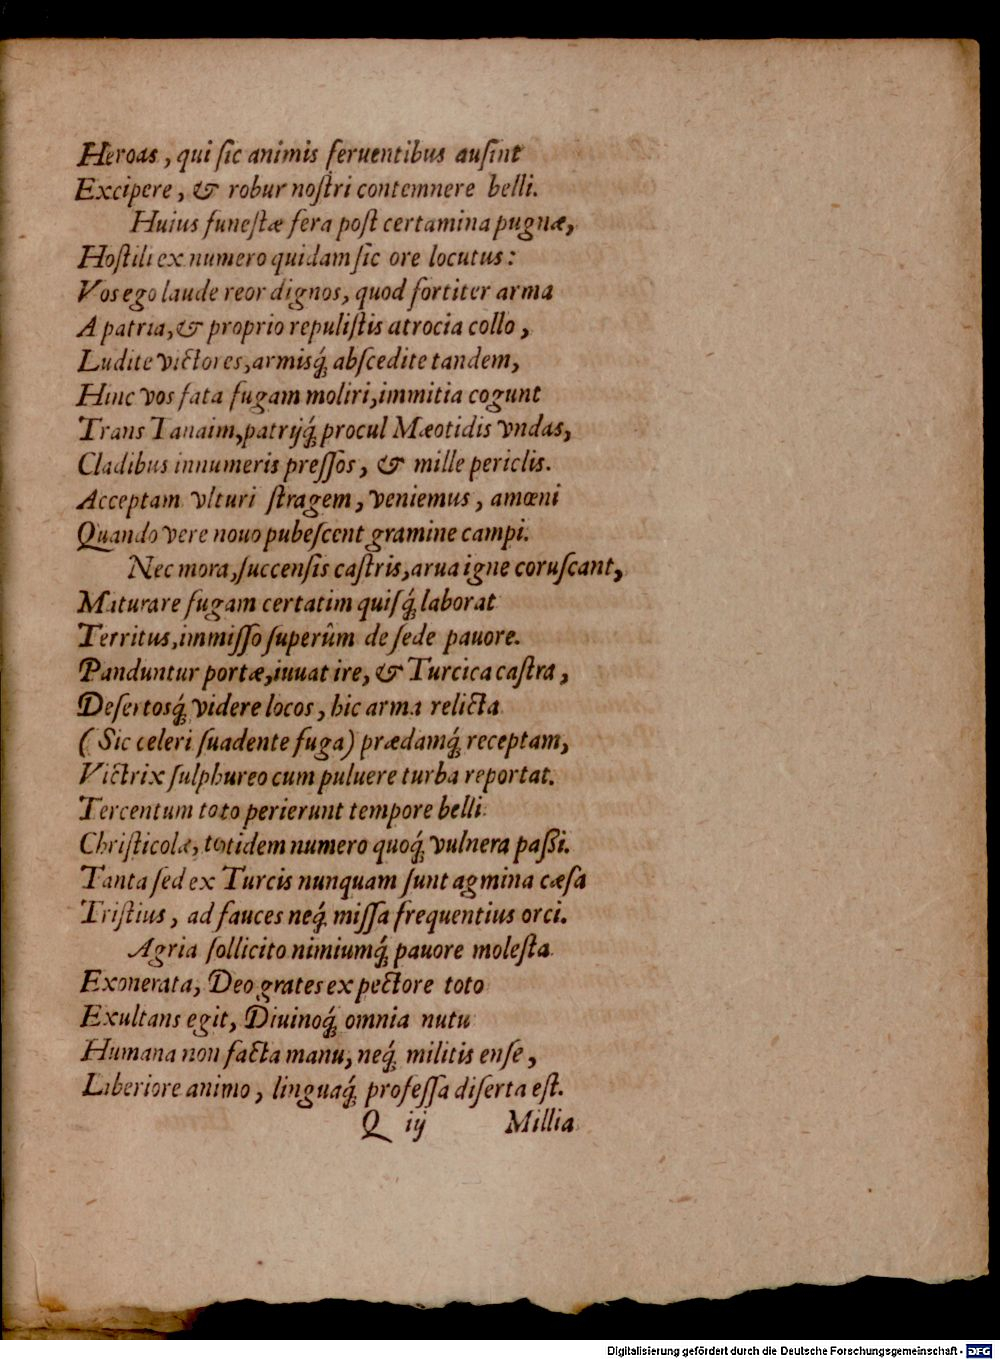 Heroas, qui ſic animis feruentibus auſint
Excipere, & robur noſtri contemnere belli.
Huius funeſtæ fera poſt certamina pugnæ,
Hoſtili ex numero quidam ſic ore locutus:
Vos ego laude reor dignos, quod fortiter arma
A patria, & proprio repuliſtis atrocia collo,
Ludite victores, armisq́; abſcedite tandem,
Hinc vos fata fugam moliri, immitia cogunt
Trans Tanaim, patrijq́; procul Mæotidis vndas,
Cladibus innumeris preſſos, & mille periclis.
Acceptam vlturi ſtragem, veniemus, amœni
Quando vere nouo pubeſcent gramine campi.
Nec mora, ſuccenſis caſtris, arua igne coruſcant,
Maturare fugam certatim quiſq́; laborat
Territus, immiſſo ſuperûm de ſede pauore.
Panduntur portæ, iuuat ire, & Turcica caſtra,
Deſertosq́; videre locos, hic arma relicta
(Sic celeri ſuadente fuga) prædamq́; receptam,
Victrix ſulphureo cum puluere turba reportat.
Tercentum toto perierunt tempore belli
Chriſticolæ, totidem numero quoq́; vulnera paßi.
Tanta ſed ex Turcis nunquam ſunt agmina cæſa
Triſtius, ad fauces neq́; miſſa frequentius orci.
Agria ſollicito nimiumq́; pauore moleſta
Exonerata, Deo grates ex pectore toto
Exultans egit, Diuinoq́; omnia nutu
Humana non facta manu, neq́; militis enſe,
Liberiore animo, linguaq́; profeſſa diſerta eſt.
Q iij Millia
Digitalisierung gefördert durch die Deutsche Forschungsgemeinschaft - DFG